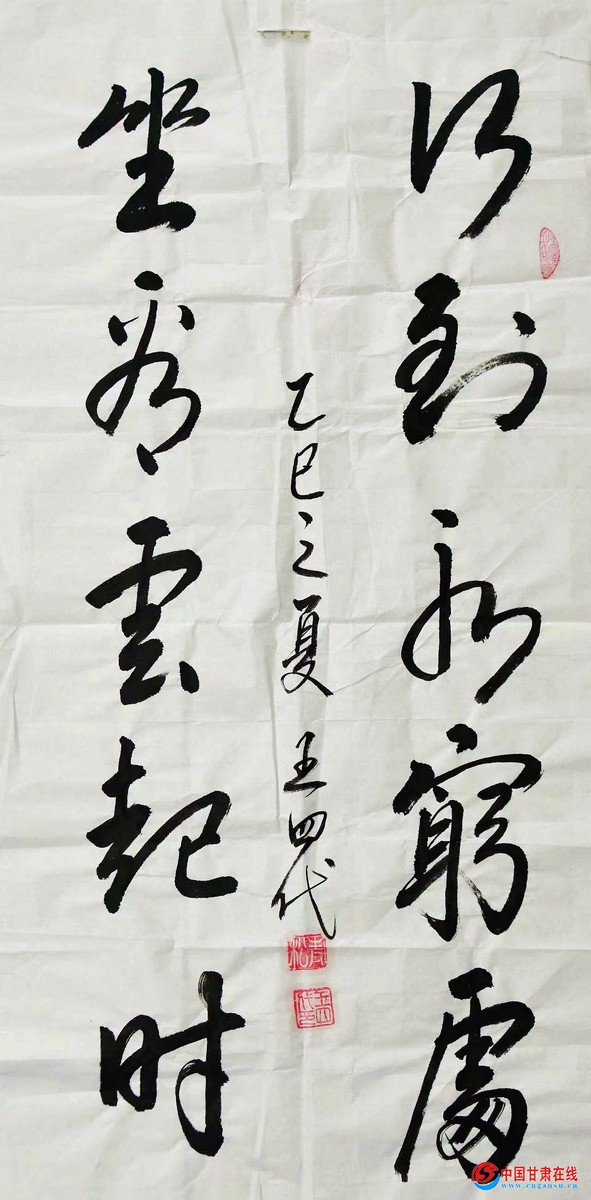 行到水窮處
坐看雲起时
乙巳之夏 王四代
中国甘肃在线
www.cngansu.cn